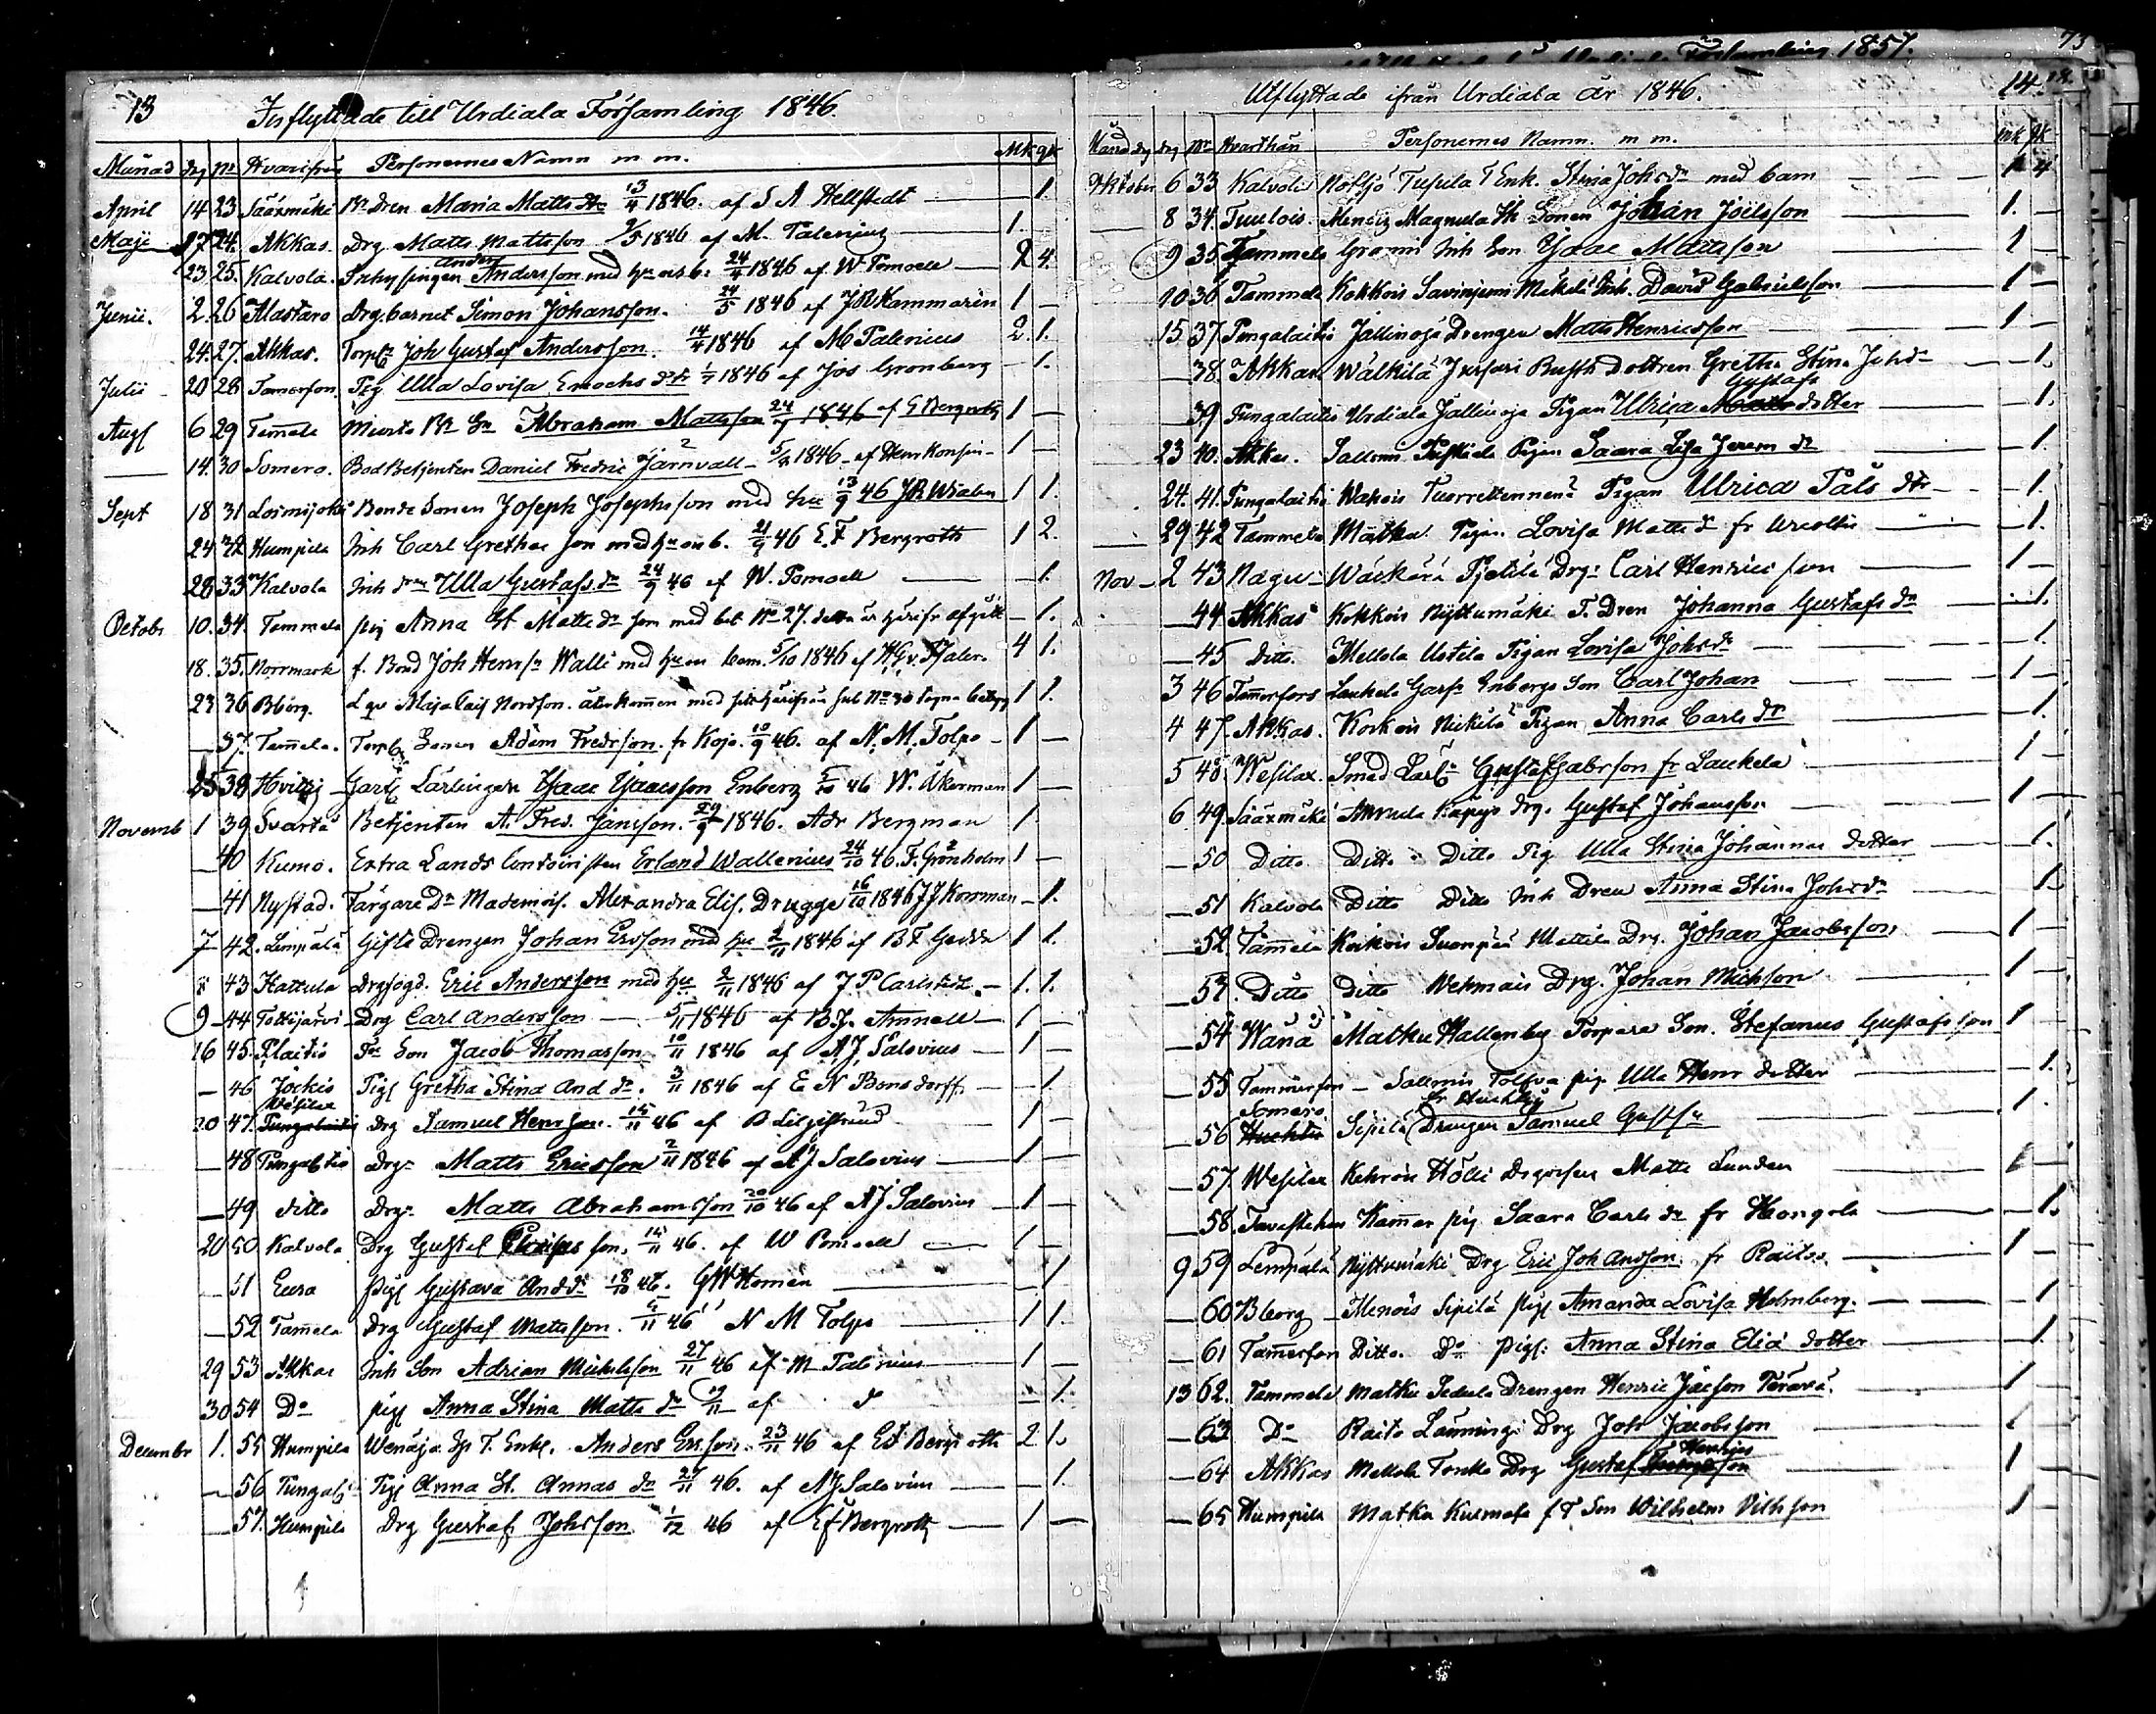 13 Inflyttade till Urdiala Församling 1846.
Månad dag No Hvarifrån Personernes Namn m m. Mk qk
April 14 23 Sääxmäki Bn dren Maria Matts dr 13/4 1846. af S A Hellstedt — 1.
Maji 17 24. Akkas. Drg Matts Mattsson 9/5 1846 af M. Palenius 1. —
Anders
23 25. Kalvola. Inhysingen Andersson med hu o 6 b. 24/4 1846 af W Pomoell — 2 4.
Junii. 2. 26 Alastaro drg. barnet Simon Johansson. 24/5 1846 af J R Hammarén 1 —
24. 27. Akkas. Torp Joh Gustaf Andersson 14/4 1846 af M Palenius 2. 1.
Julii 20 28 Tamerfors. Pig Ulla Lovisa Enochs dtr 1/7 1846 af Jos Grönberg — 1.
Aug 6 29 Tamela Bn Sn Abraham Mattsson 24/7 1846 af E Bergroth 1 —
— 14. 30 Somero. Bod Betjenten Daniel Fredric Järnvall 5/8 1846 af Henr 1 —
Sept 18 31 Loimijoki Bonde Sonen Joseph Josephsson med hu 13/9 46 J R 1 1.
24 32 Humpila Inh Carl Grethas son med hu o 6. 21/9 46 E. F Bergroth 1 2.
28 33 Kalvola Inh dren Ulla Gustafs dr 24/9 46 af W. Pomoell — 1.
Octobr 10. 34. Tammela pig Anna St Matts dr som med bet No 27. detta år härifr afgått — 1.
18. 35. Norrmark f. Bond Joh Henrsn Walli med hu o barn. 5/10 1846 af 4 1.
23 36 Bborg. Maja Caj Nordfon. återkommen med härifrån sub No 30 1 1.
— 37. Tamela. Torp Sonen Adam Fredrson. fr Kojo. 10/9 46. af N. M. Tolpo — 1 —
25 38 Hvittis Garf Lärlingen Isaac Isaacsson Enberg 5/10 46 W. Åkerman 1 —
Novemb 1 39 Svartå Betjenten A. Fred. Jansson. 29/9 1846. Adr Bergman 1
— 40 Kumo. Extra Lands Contoiristen Erland Wallenius 24/10 46. F. Grönholm 1 —
— 41 Nystad. Färgare Dr Mademois. Alexandra Elis. Drugge 16/10 1846 J J — 1.
7 42. Lempälä Gifte Drengen Johan Ersson med hu 2/11 1846 af B F Gadd 1 1.
8 43 Hattula Drgfogd. Eric Andersson med hu 2/11 1846 af J P Carlstedt — 1. 1.
9 — 44 Tottijärvi Drg Carl Andersson — 5/11 1846 af B. J. Amnell — 1 —
16 45. Plaitis Tor Son Jacob Thomasson 10/11 1846 af A J. Salovius — 1 —
— 46 Jockis Pig Gretha Stina And dr. 3/11 1846 af E N Bonsdorff. — 1.
Wesilax
20 47. Pungalaitio Drg Samuel Henrson. 15/11 46 af B Liljestrand 1 —
— 48 Pungal:tio Drg. Matts Ericsson 2/11 1846 af A J Salovius — 1 —
— 49 ditto Drg. Matts Abrahamsson 20/10 46 af A J Salovius — 1 —
20 50 Kalvola Drg Gustaf son. 14/11 46. af W Pomoell — 1 —
— 51 Eura Pig Gustava And dr 18/10 46. G W Homén — 1
— 52 Tamela Drg Gustaf Mattsson. 4/11 46 N M Tolpo — 1 1.
29 53 Akkas Inh Son Adrian Michelsson 27/11 46 af M Palenius — 1 —
30 54 Do pig Anna Stina Matts dr 19/11 af d — 1.
Decembr 1. 55 Humpila Wenäjä T. Enkl. Anders Ersson. 23/11 46 af E F Bergroth 2 1.
— 56 Pungal: Pig Anna St. Annas dr 27/11 46. af A J Salovius — 1.
— 57. Humpila Drg Gustaf Johsson 1/12 46 af E F Bergroth — 1 —
Församling 1857. 73
Utflyttade ifrån Urdiala år 1846. 14.
Månad dag No Hvarthän Personernes Namn. m m. mk qk
Oktober 6 33 Kalvola Notsjö Tupila T Enk. Stina Johsdr med barn — 1 4
— 8 34. Tuulois. Menois Magnula Sonen Johan Joelsson — 1. —
9 35 Tammela Inh Son Isaac Mattsson — 1 —
10 36 Tammela Kokkois Savinjemi Mikola Inh. David Gabrielsson — 1 —
15 37. Pungalaitio Jallinoja Drengen Matts Henricsson — 1 —
— 38. Akkas Wälkilä Dottren Gretha Stina Johsdr — 1.
Gustafs
— 39 Pungalaitio Urdiala Jallinoja Pigan Ulrica Matts dotter — 1.
23 40. Akkas. Salloini Pigan Saara Lisa Jerem dr — 1.
24. 41. Pungalaitio Pigan Ulrica Påls dtr — 1.
— 29 42 Tammela Matku Pigan Lovisa Matts dr fr — 1.
Nov 2 43 Nagu Drg. Carl Henricsson — 1 —
— 44 Akkas Kokkois Nyttumäki T. Dren Johanna Gustafs dr — 1.
— 45 Ditto. Mellola Uotila Pigan Lovisa Johsdr — 1.
3 46 Tamerfors Laukela Garf: Enbergs Son Carl Johan — 1 —
4 47. Akkas. Kokkois Nickilä Pigan Anna Carls dr — 1.
5 48. Wesilax. Smed Lärl: Gustaf Gabrson fr Laukela — 1 —
6 49. Sääxmäki Annula Käpijs drg. Gustaf Johansson — 1 —
— 50 Ditto Ditto Ditto Pig Ulla Stina Johannes dotter — 1.
— 51 Kalvola Ditto Ditto Inh Dren Anna Stina Johsdr — 1.
— 52 Tamela Koikois Suonpää Mattila Drg. Johan Jacobsson, — 1 —
— 53. Ditto Ditto Wekmais Drg. Johan Michson — 1 —
— 54 Wånå Matku Hallenberg Torpare Son. Stefanus Gustafsson 1 —
— 55 Tammerfors — Salloinis Tolpva pig. Ulla Henr dotter — 1.
Somero fr Huchtis
— 56 Huchtis Sipilä Drengen Samuel Gustsn — 1.
— 57. Wesilax Kehrois Hölli Matts Lundan — 1 —
— 58. Tavastehus Kamar pig. Saara Carls dr fr Hongola — 1.
9 59 Lempälä Nyttumäki Drg Eric Joh Andson. fr Raitoo. — 1 —
— 60 Bborg — Menois Sipilä pig Amanda Lovisa Holmberg. — 1
— 61 Tamerfors Ditto. Do pig: Anna Stina Eliæ dotter — 1.
13 62. Tammela Matku Drengen Henric Jacson Terävä. — 1
— 63 Do Raito Länningi Drg Joh Jacobsson — 1
Henrics
— 64 Akkas Mellola Drg Gustaf son — 1
— 65 Humpila Matku f T Son Wilhelm Vilhson 1 —